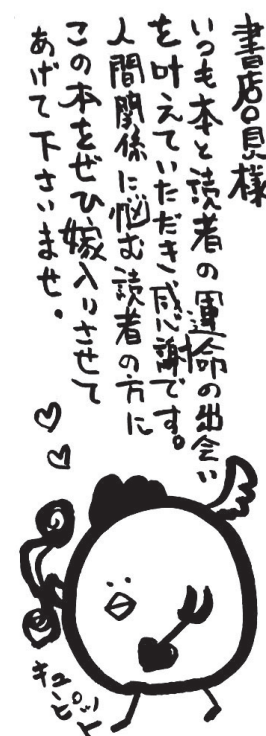 書店員様
いつも本と読者の運命の出会い
を叶えていただき感謝です。
人間関係に悩む読者の方に
この本をぜひ嫁入りさせて
あげて下さいませ。
キューピット